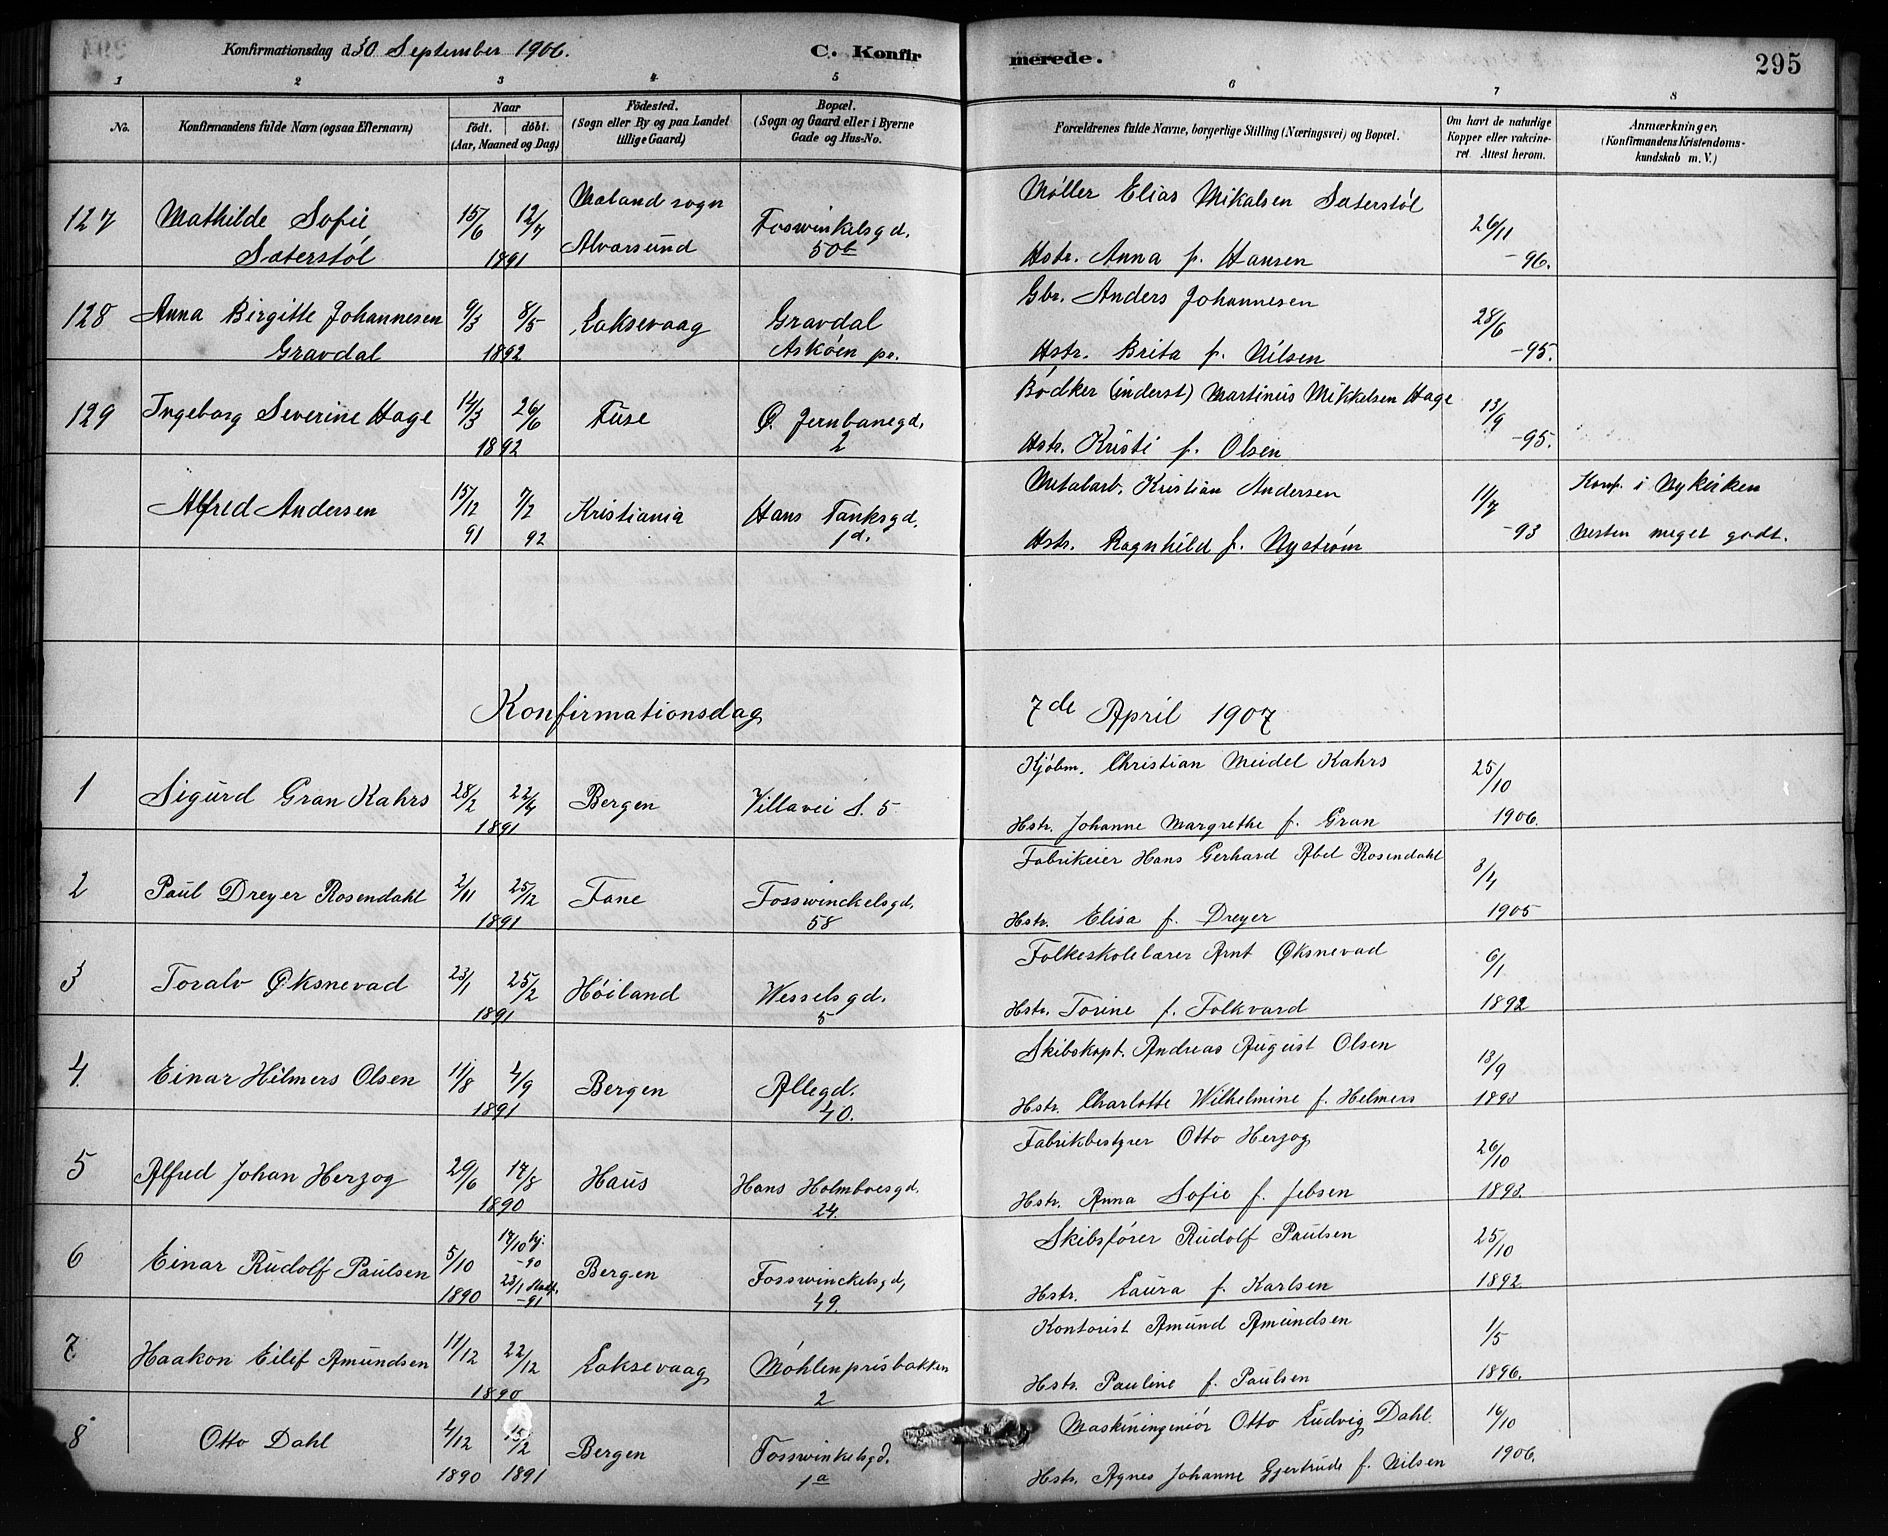 Konfirmationsdag d. 30 September 1906.
C. Konfirmerede.
295
1 2 3 4 5 6 7 8
No.
Konfirmandens fulde Navn (ogsaa Efternavn)
Naar
födt. döbt.
(Aar, Maaned og Dag)
Födested.
(Sogn eller By og paa Landet
tillige Gaard)
Bopæl.
(Sogn og Gaard eller i Byerne
Gade og Hus-No.
Forældrenes fulde Navne, borgerlige Stilling (Næringsvei) og Bopæl.
Om havt de naturlige
Kopper eller vakcine-
ret. Attest herom.
Anmærkninger.
(Konfirmandens Kristendoms-
kundskab m. V.)
127 Mathilde Sofie Sæterstöl 15/6 12/7 1891 Mæland sogn Alvarsund Foswinkelsgd. 50b Møller Elias Mikalsen Sæterstöl Hstr. Anna f. Hansen 26/11 -96.
128 Anna Birgitte Johannesen Gravdal 9/3 8/5 1892 Laksevaag Gravdal Asköen pr. Gbr. Anders Johannesen Hstr. Brita f. Nilsen 28/6 -95.
129 Ingeborg Severine Hage 14/3 26/6 1892 Fuse Ø. Jernbanegd. 2 Bødker (inderst) Martinus Mikkelsen Hage Hstr. Kristi f. Olsen 13/9 -95.
Alfred Andersen 15/12 91 7/2 92 Kristiania Hans Tanksgd. 1d. Metalarb. Kristian Andersen Hstr. Ragnhild f. Nyström 11/7 -93 Konf. i Nykirken Nesten meget godt.
Konfirmationsdag 7de April 1907
1 Sigurd Gran Kahrs 28/2 22/4 1891 Bergen Villavei S. 5 Kjöbm. Christian Meidel Kahrs Hstr. Johanne Margrethe f. Gran 25/10 1906.
2 Paul Dreyer Rosendahl 2/11 25/12 1891 Fane Fosswinckelsgd. 58 Fabrikeier Hans Gerhard Abel Rosendahl Hstr. Elisa f. Dreyer 3/4 1905
3 Toralv Øksnevad 23/1 25/2 1891 Höiland Wesselsgd. 5 Folkeskolelærer Arnt Øksnevad Hstr. Torine f. Folkvard 6/1 1892
4 Einar Helmers Olsen 11/8 4/9 1891 Bergen Allegd. 40. Skibskapt. Andreas August Olsen Hstr. Charlotte Wilhelmine f. Helmers 13/9 1893
5 Alfred Johan Herzog 29/6 17/8 1890 Haus Hans Holmboesgd. 24. Fabrikbestyrer Otto Herzog Hstr. Anna Sofie f. Jebsen 26/10 1893.
6 Einar Rudolf Paulsen 5/10 1890 17/10 hj. -90 23/1 Stadf. -91 Bergen Fosswinckelsgd. 49. Skibsförer Rudolf Paulsen Hstr. Laura f. Karlsen 25/10 1892
7 Haakon Eilif Amundsen 11/12 22/12 1890 Laksevaag Möhlenprisbakken 2 Kontorist Amund Amundsen Hstr. Pauline f. Paulsen 1/5 1896.
8 Otto Dahl 4/12 1890 15/2 1891 Bergen Fosswinkelsgd. 1a Maskiningeniör Otto Ludvig Dahl. Hstr. Agnes Johanne Gjertrude f. Nilsen 16/10 1906.